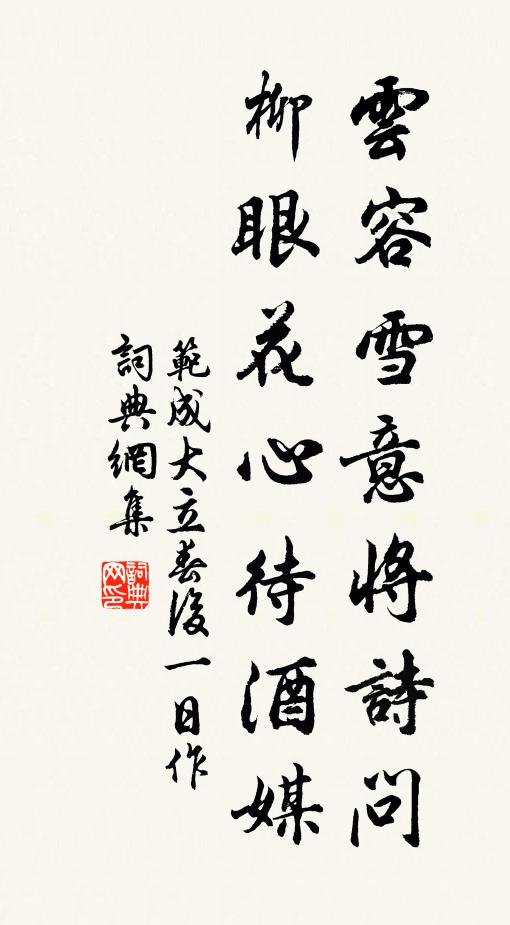 雲容雪意將詩問
柳眼花心待酒媒
範成大立春後一日作
詞典網集
詞典網印